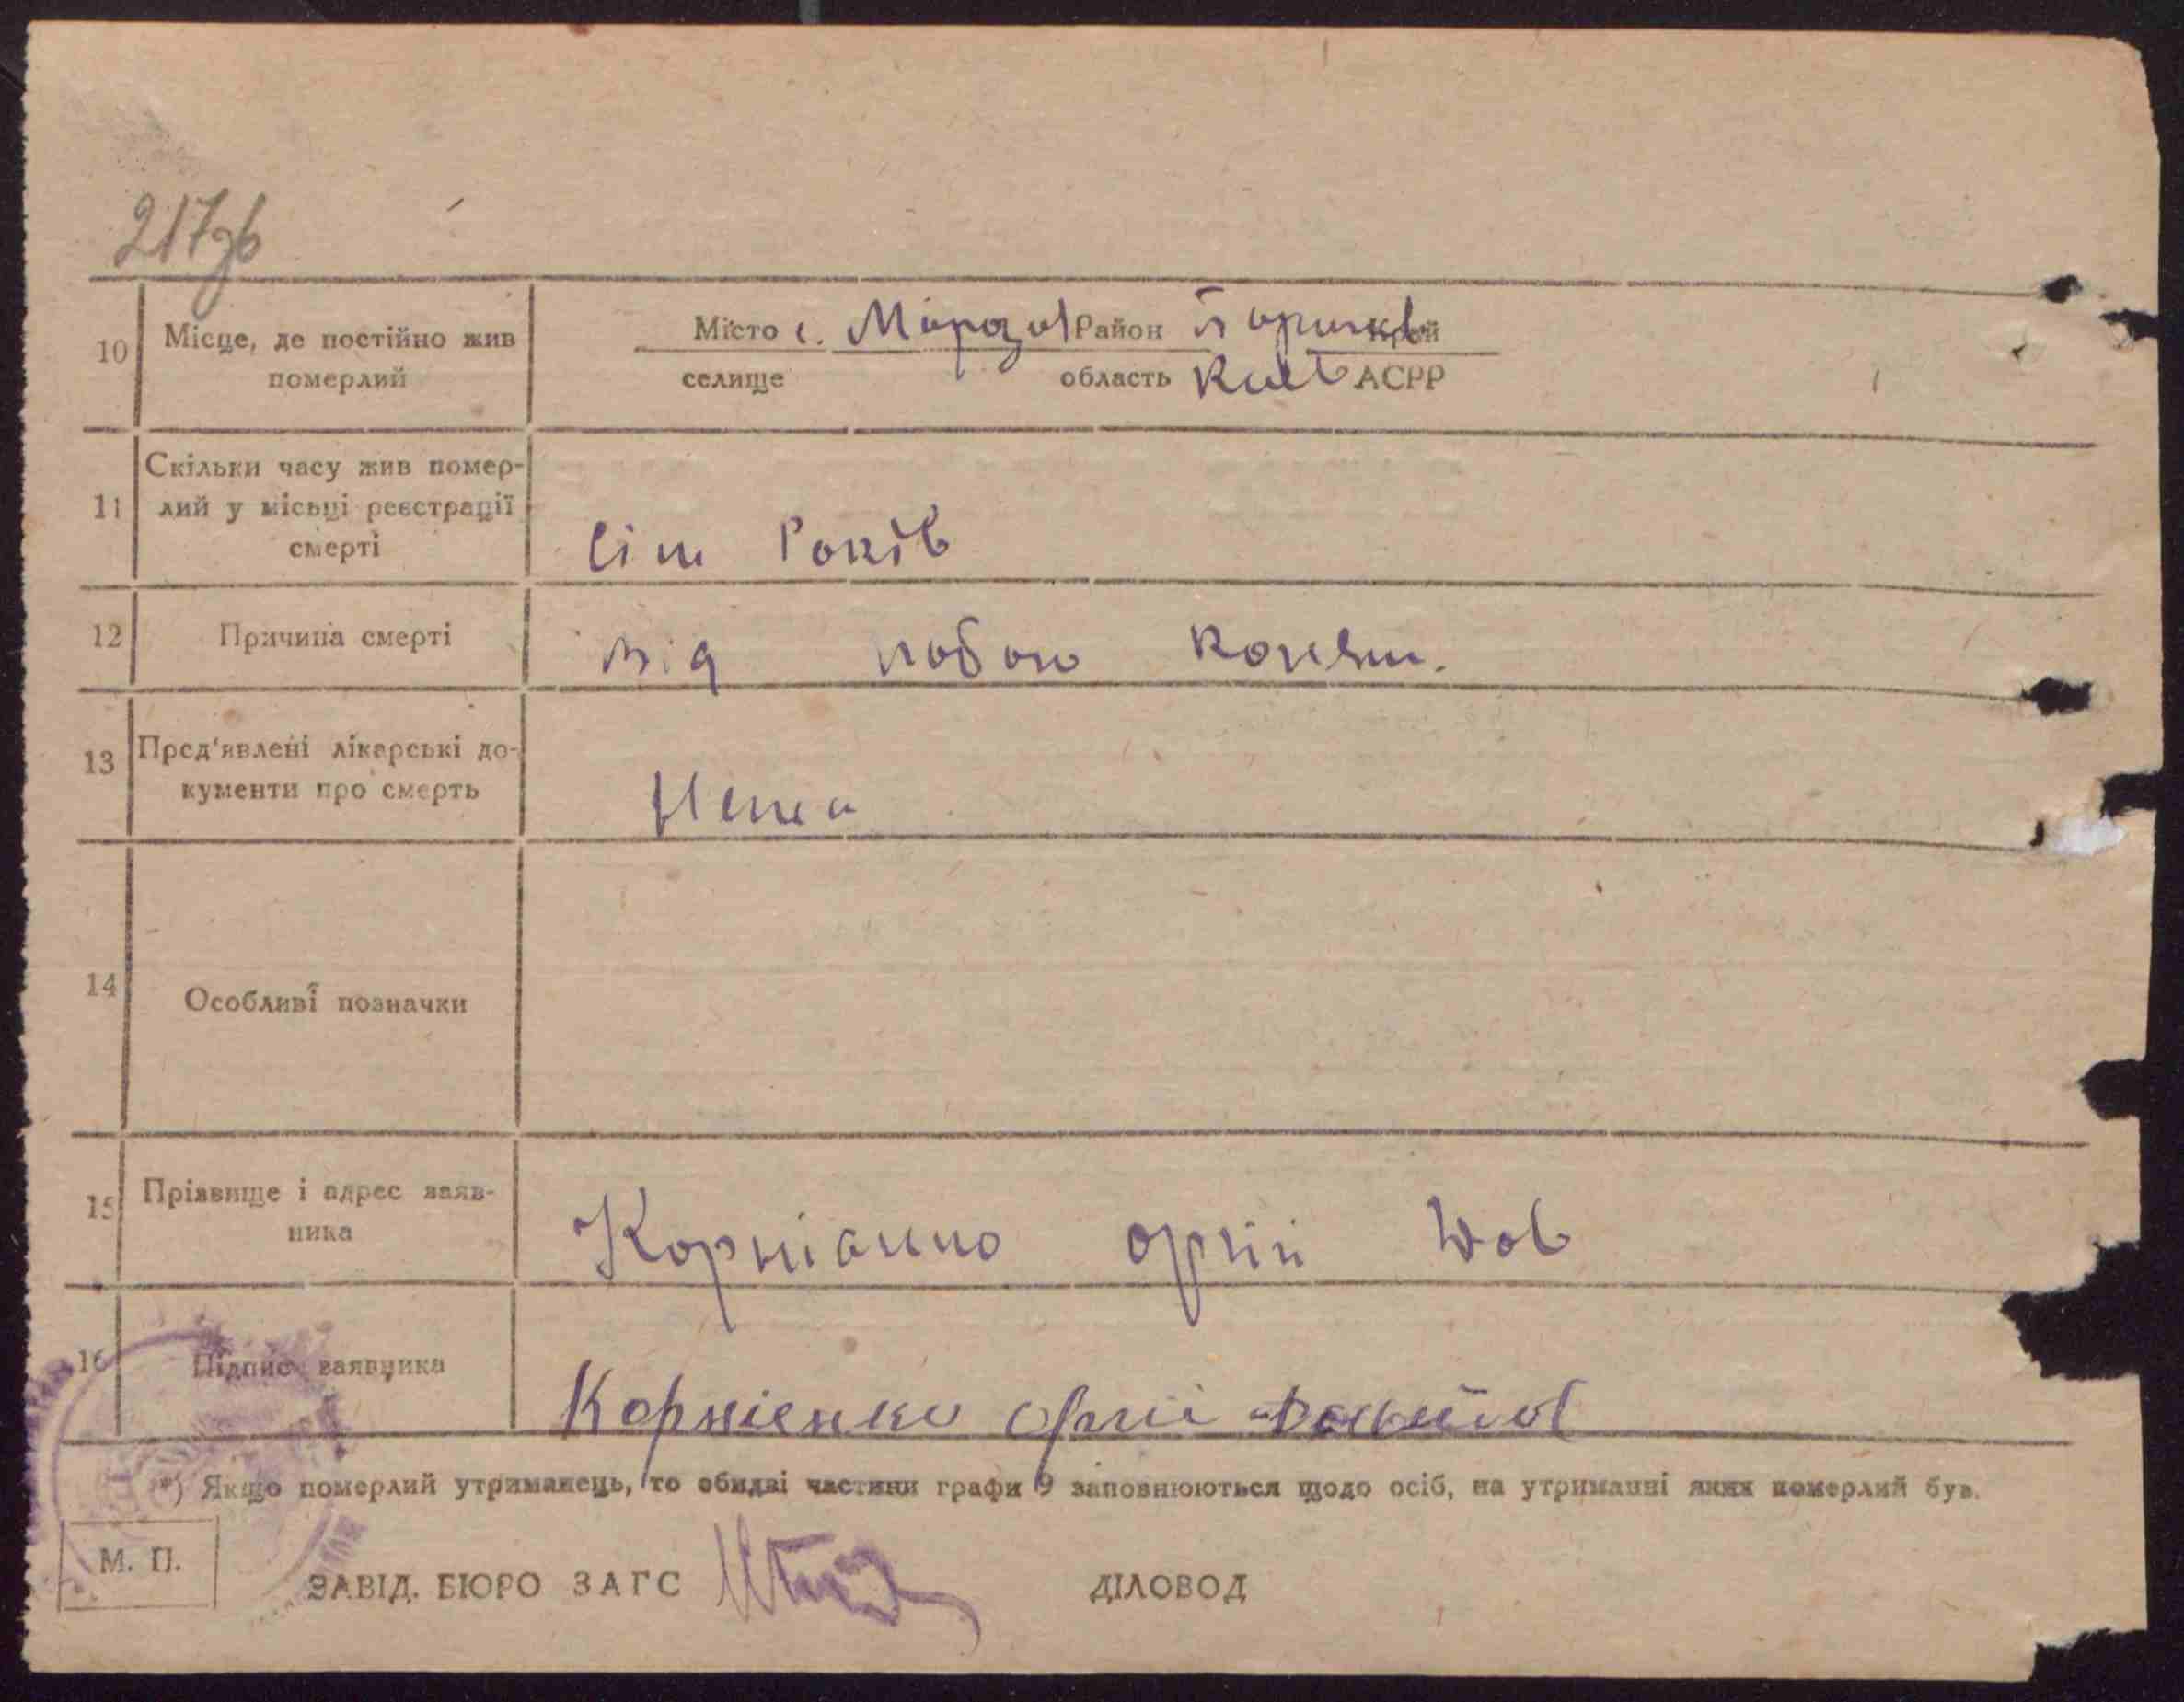 217зв
10 Місце, де постійно жив Місто с. Район край
померлий селище область Київ АСРР
Скільки часу жив помер-
11 лий у місьці реєстрації
смерті сім Років
12 Причина смерті від побою
13 Пред'явлені лікарські до-
кументи про смерть Нема
14 Особливі позначки
15 Прізвище і адрес заяв-
ника
16 Підпис заявника Корнієнко
*) Якщо померлий утриманець, то обидві частини графи 9 заповнюються щодо осіб, на утриманні яких померлий був.
М. П.
ЗАВІД. БЮРО ЗАГС ДІЛОВОД